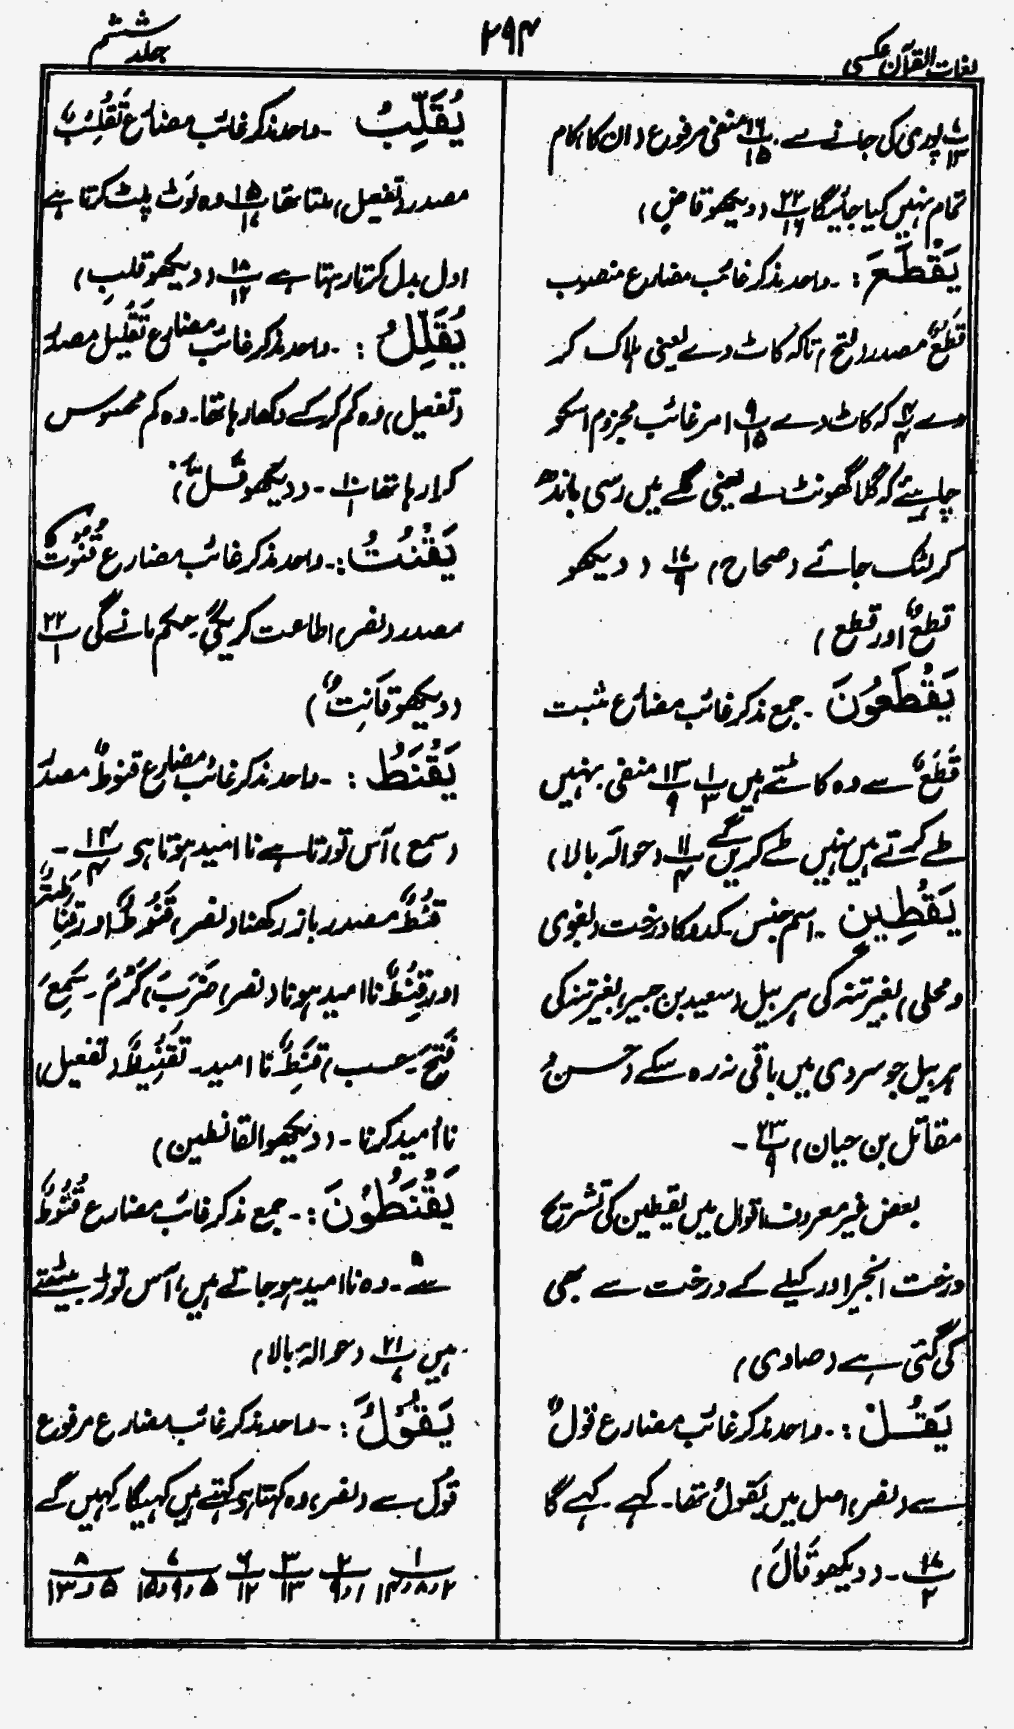 لغات القرآن عکسی
۲۹۴
جلد ششم
پ ۷/۱۳ پوری کی جانے سے۔ پ ۱۶/۱۵ منفی مرفوع (ان کا کام
تمام نہیں کیا جائیگا پ ۲۲/۱۶ (دیکھو قاضٍ)
یَقْطَعَ :۔ واحد مذکر غائب مضارع منصوب
قَطْعٌ مصدر (فتح) تاکہ کاٹ دے یعنی ہلاک کر
دے پ ۴/۴ کہ کاٹ دے پ ۹/۱۵ امر غائب مجزوم اسکو
چاہیئے کہ گلا گھونٹ لے یعنی گلے میں رسی باندھ
کر لٹک جائے (صحاح) پ ۱۷/۹ (دیکھو
قطعٌ اور قطع)
یَقْطَعُوْنَ ۔ جمع مذکر غائب مضارع مثبت
قَطْعٌ سے وہ کاٹتے ہیں پ ۱/۳ پ ۱۳/۹ منفی نہیں
طے کرتے ہیں نہیں طے کریں گے پ ۱۱/۴ (حوالہ بالا)
یَقْطِیْنٍ ۔ اسم جنس۔ کدو کا درخت (بغوی
و محلی) بغیر تنہ کی ہر بیل (سعید بن جبیر) بغیر تنہ کی
ہر بیل جو سردی میں باقی نہ رہ سکے (حسن و
مقاتل بن حیان) پ ۲۳/۹ ۔
بعض غیر معروف اقوال میں یقطین کی تشریح
درخت انجیر اور کیلے کے درخت سے بھی
کی گئی ہے (صاوی)
یَقُلْ :۔ واحد مذکر غائب مضارع قولٌ
سے (نصر) اصل میں یَقُولُ تھا۔ کہے۔ کہے گا
پ ۱۷/۲ ۔ (دیکھو قَالَ)
یُقَلِّبُ ۔ واحد مذکر غائب مضارع تَقْلِیْبٌ
مصدر (تفعیل) ملتا تھا پ ۱۵/۱۷ وہ لوٹ پلٹ کرتا ہے
ادل بدل کرتا رہتا ہے پ ۱۸/۱۲ (دیکھو قلبِ)
یُقَلِّلُ :۔ واحد مذکر غائب مضارع تَقْلِیْل مصدر
(تفعیل) وہ کم کر کے دکھا رہا تھا۔ وہ کم محسوس
کرا رہا تھا پ ۱۰/۱ ۔ (دیکھو قَلَّ)
یَقْنُتُ :۔ واحد مذکر غائب مضارع قُنُوْتٌ
مصدر (نصر) اطاعت کریگی۔ حکم مانے گی پ ۲۲/۱
(دیکھو قَانِتٌ)
یَقْنَطُ :۔ واحد مذکر غائب مضارع قنوطٌ مصدر
(سمع) آس توڑتا ہے نا امید ہوتا ہو پ ۱۴/۴ ۔
قَنْطٌ مصدر باز رکھنا (نصر) قَنُوطٌ اور
اور قِنَطٌ نا امید ہونا (نصر، ضَرَبَ، کَرُمَ۔ سَمِعَ
فَتَحَ۔ حسب) قَنِطٌ نا امید۔ تَقْنِیْطٌ (تفعیل)
نا اُمید کرنا۔ (دیکھو القانطین)
یَقْنَطُوْنَ :۔ جمع مذکر غائب مضارع قُنُوْطٌ
سے۔ وہ نا امید ہو جاتے ہیں، آس توڑ بیٹھتے
ہیں پ ۲۱/۷ (حوالہ بالا)
یَقُوْلُ :۔ واحد مذکر غائب مضارع مرفوع
قَوْل سے (نصر) وہ کہتا ہو کہتے ہیں کہیگا۔ کہیں گے
پ ۱/۲، ۸، ۱۴ پ ۲/۱، ۹ پ ۳/۱۳ پ ۶/۱۲ پ ۷/۵، ۹، ۱۵ پ ۸/۵، ۱۳